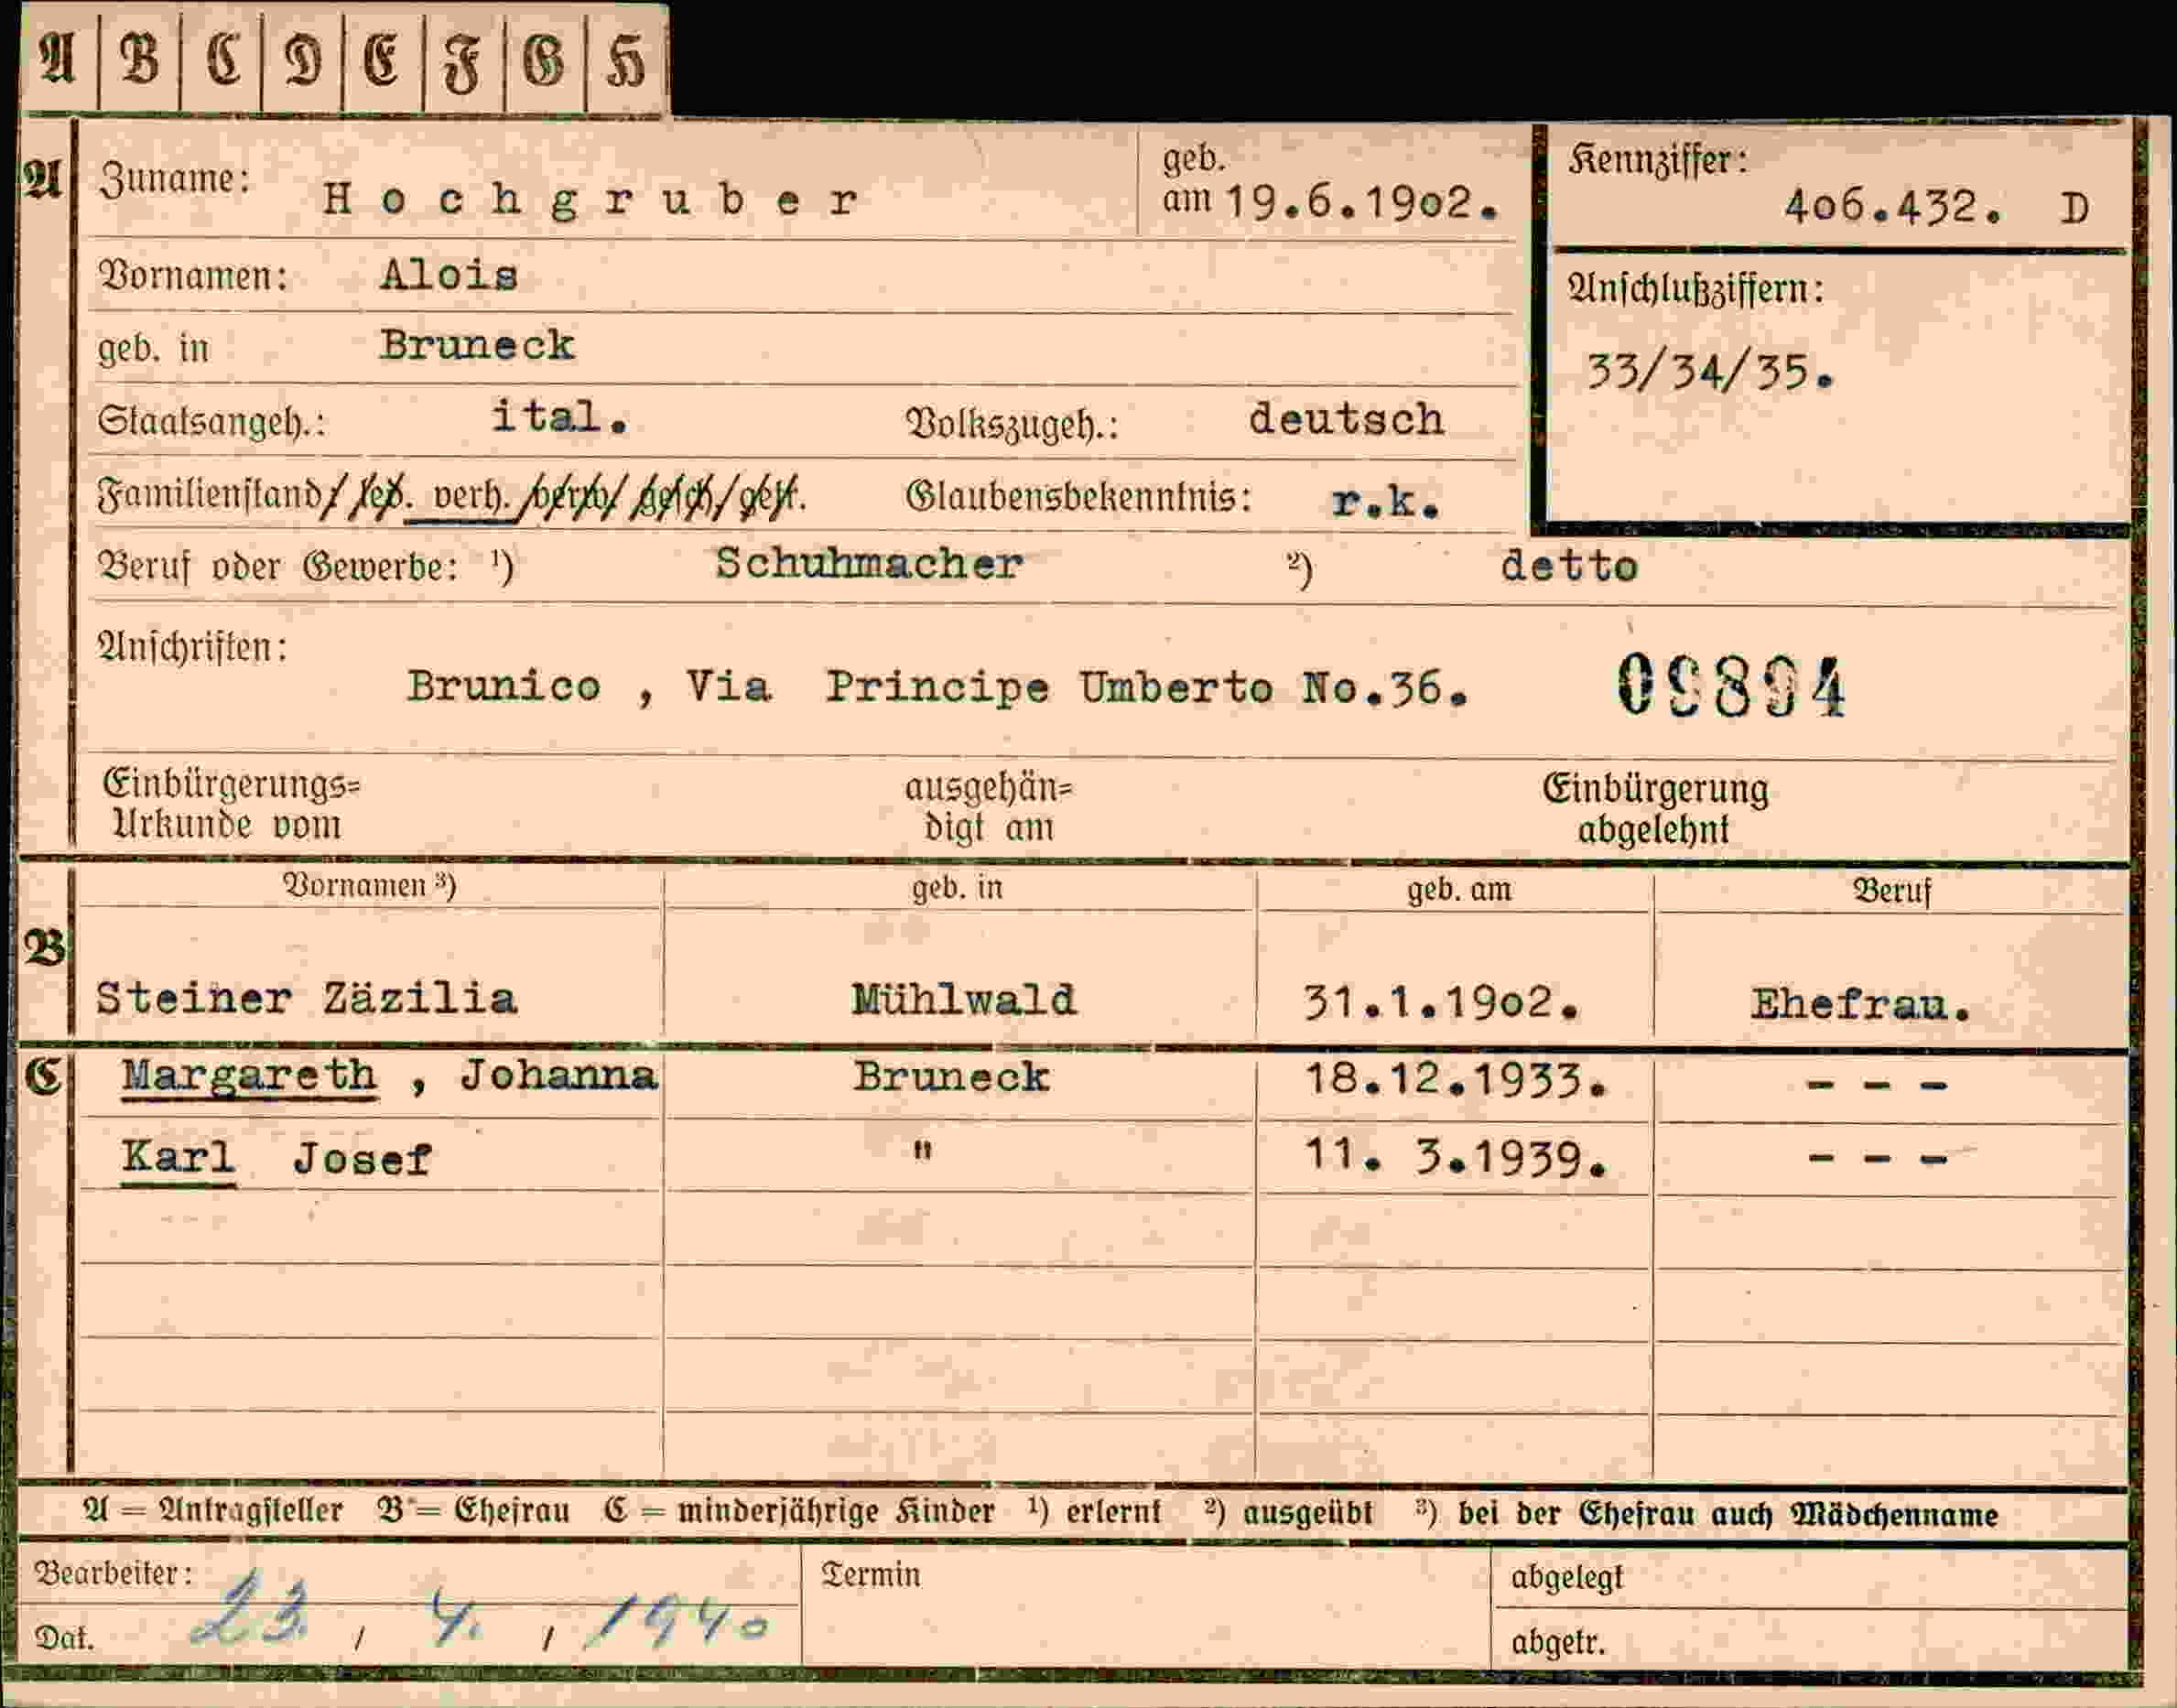 A B C D E F G H
A Zuname: Hochgruber geb. am 19.6.1902. Kennziffer: 406.432. D
Vornamen: Alois Anschlußziffern:
geb. in Bruneck 33/34/35.
Staatsangeh.: ital. Volkszugeh.: deutsch
Familienstand led. verh. verw. gesch. get. Glaubensbekenntnis: r.k.
Beruf oder Gewerbe: ¹) Schuhmacher ²) detto
Anschriften:
Brunico , Via Principe Umberto No.36. 09894
Einbürgerungs= ausgehän= Einbürgerung
Urkunde vom digt am abgelehnt
Vornamen ³) geb. in geb. am Beruf
B
Steiner Zäzilia Mühlwald 31.1.1902. Ehefrau.
C Margareth , Johanna Bruneck 18.12.1933. - - -
Karl Josef " 11. 3.1939. - - -
A = Antragsteller B = Ehefrau C = minderjährige Kinder ¹) erlernt ²) ausgeübt ³) bei der Ehefrau auch Mädchenname
Bearbeiter: Termin abgelegt
Dat. 23. / 4. / 1940 abgetr.